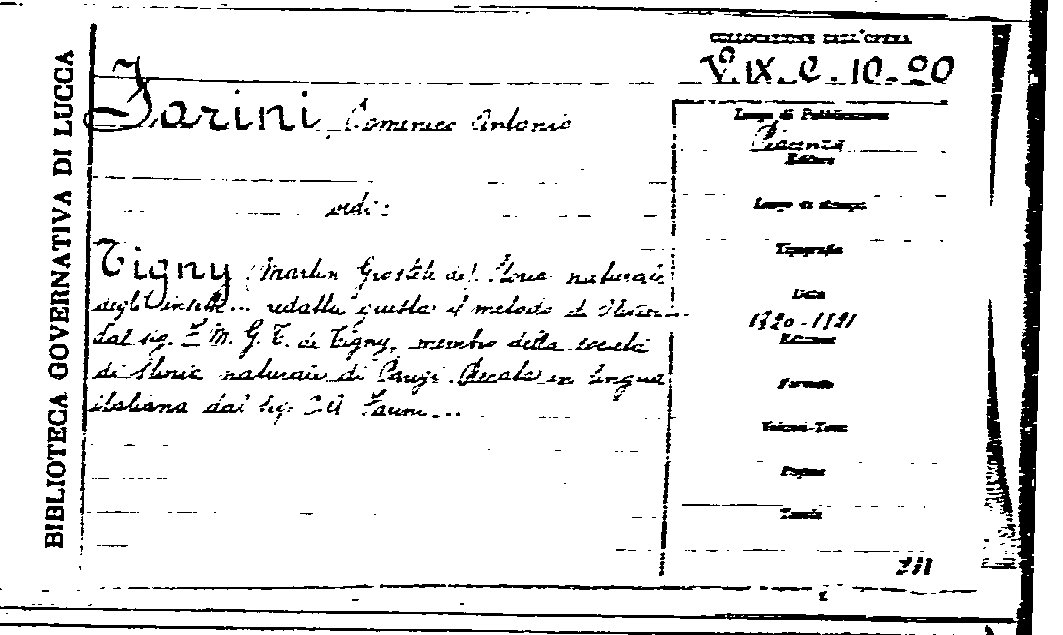 BIBLIOTECA GOVERNATIVA DI LUCCA
COLLOCAZIONE DELL'OPERA
V. IX. C. 10-20
Farini, Domenico Antonio
vedi:
Tigny (Martin Grostête de). Storia naturale
degl'insetti... redatta giusta il metodo di
dal sig. F. M. G. T. de Tigny, membro della società
di Storia naturale di Parigi. Recata in lingua
italiana dal sig. D. A. Farini...
Luogo di Pubblicazione
Piacenza
Editore
Luogo di stampa
Tipografia
Data
Edizione
Formato
Volumi-Tomi
Pagine
Tavole